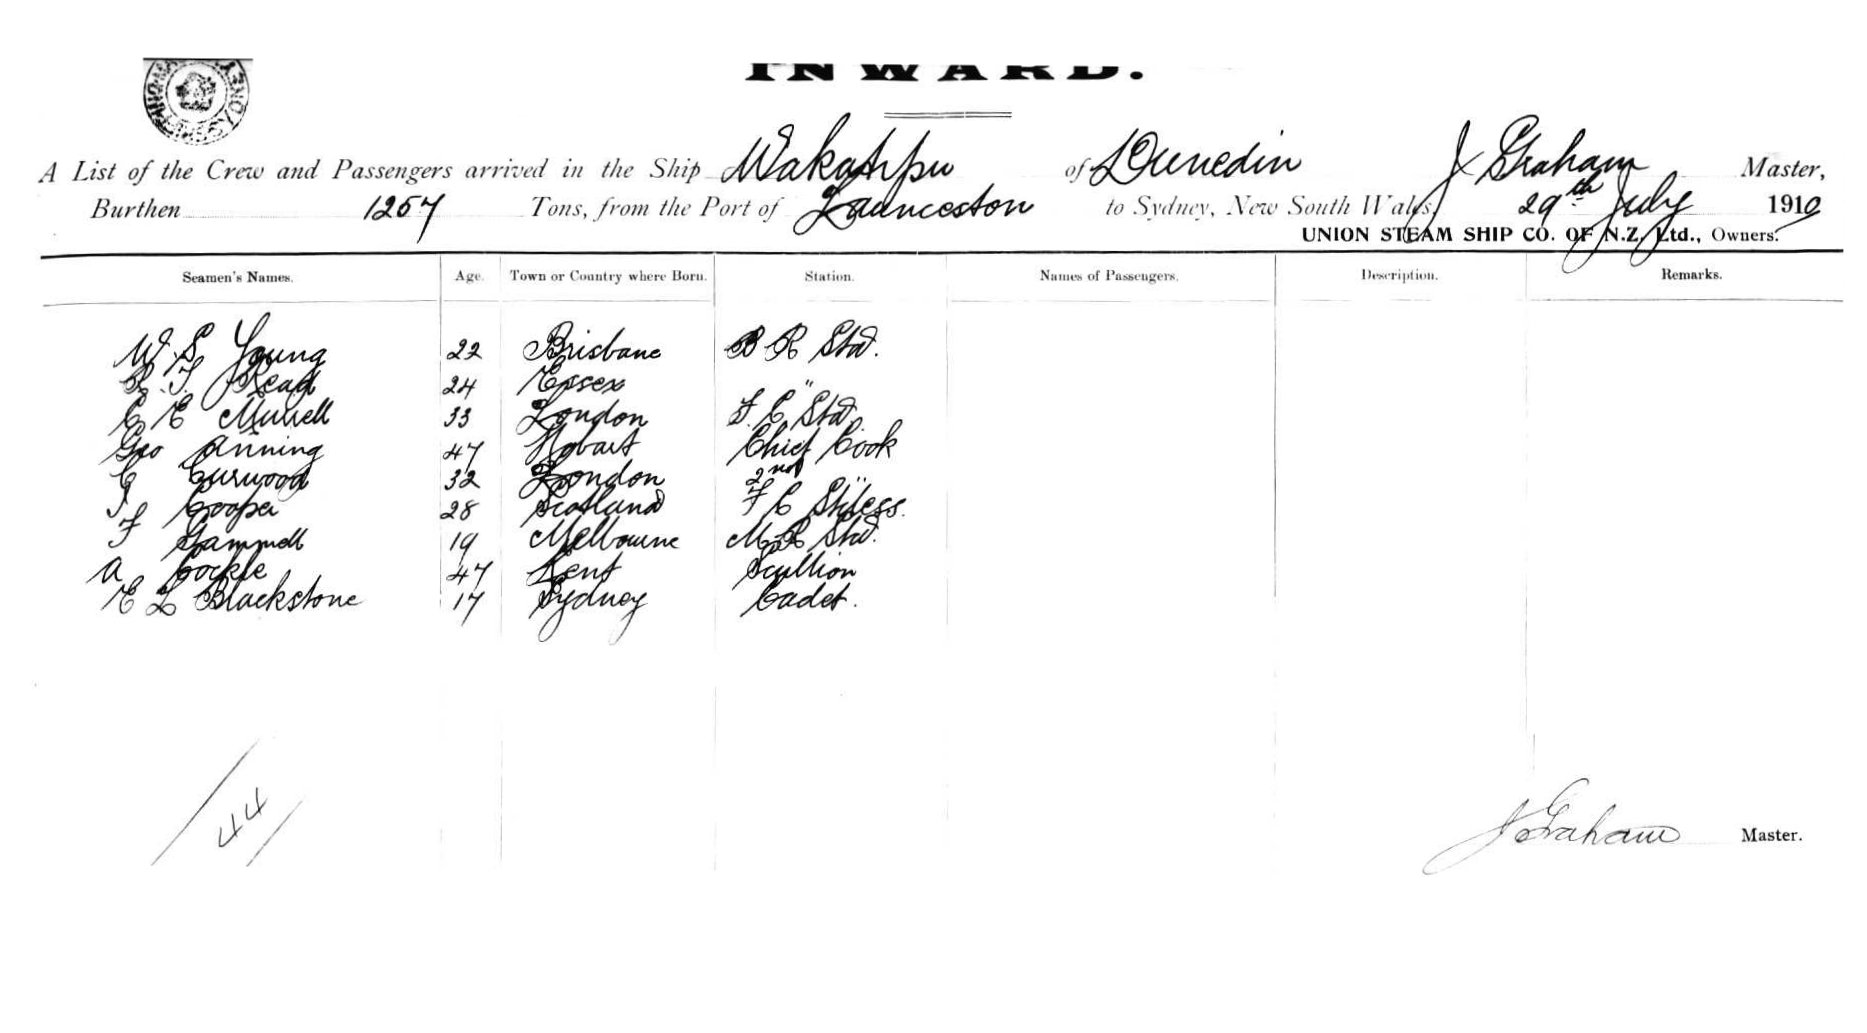 INWARD.
A List of the Crew and Passengers arrived in the Ship Wakatipu of Dunedin J Graham Master,
Burthen 1257 Tons, from the Port of Launceston to Sydney, New South Wales, 29th July 1910
UNION STEAM SHIP CO. OF N.Z. Ltd., Owners.
Seamen's Names. Age. Town or Country where Born. Station. Names of Passengers. Description. Remarks.
W. S Young 22 Brisbane B R Std.
R. F. Read 24 Essex "
C E Murrell 33 London F. C. Std.
Geo Anning 47 Hobart Chief Cook
C Curwood 32 London 2nd "
Cooper 28 Scotland F C Stdess.
F Gammell 19 Melbourne M. R Std.
A Cockle 47 Kent Scullion
E L Blackstone 17 Sydney Cadet.
44
J Graham Master.